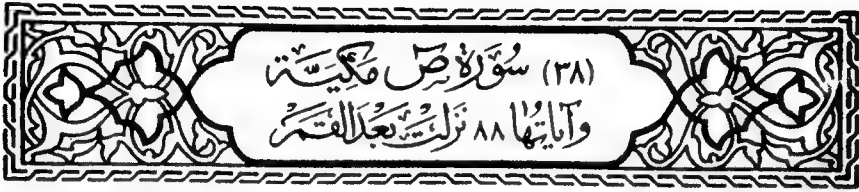 (٣٨) سُوَرةُ صۤ مَكيَّة
وَآياتهَا ٨٨ نَزلتْ بَعْدَ القَمَرْ